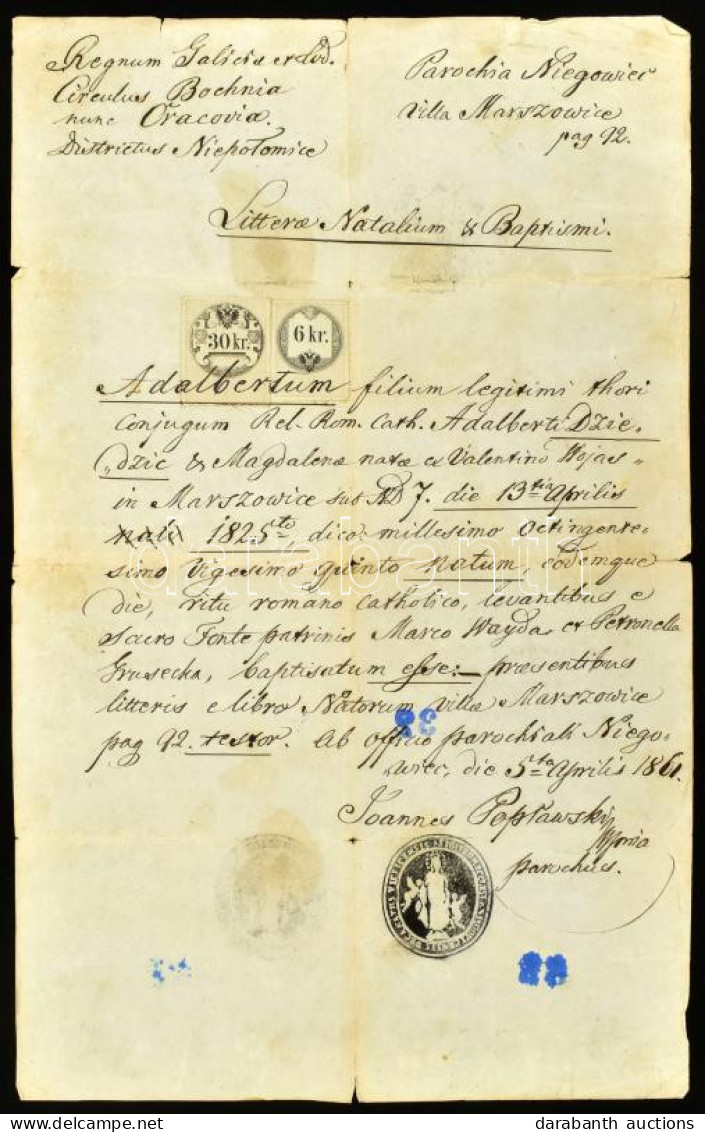 Regnum Galiciæ et Lod.
Circulus Bochnia
nunc Cracoviæ.
Districtus Niepołomice
Parochia Niegowiec
Villa Marszowice
pag 92.
Litteræ Natalium & Baptismi.
30 kr.
6 kr.
Adalbertum filium legitimi thori
conjugum Rel. Rom. Cath. Adalberti Dzie„
„dzic & Magdalenæ natæ ex Valentino Wojas„
in Marszowice sub ND 7. die 13tia Aprilis
nati 1825to, dico: millesimo octingente„
simo vigesimo quinto natum, eodemque
die, ritu romano catholico, levantibus e
Sacro Fonte patrinis Marco Wayda et Petronella
Grusecka, baptisatum esse:— præsentibus
litteris e libro Natorum villæ Marszowice
pag 92. testor. Ab officio parochiali Niego„
„wiec, die 5ta Aprilis 1861.
Joannes Popławski
parochus.
darabanth
darabanth auctions